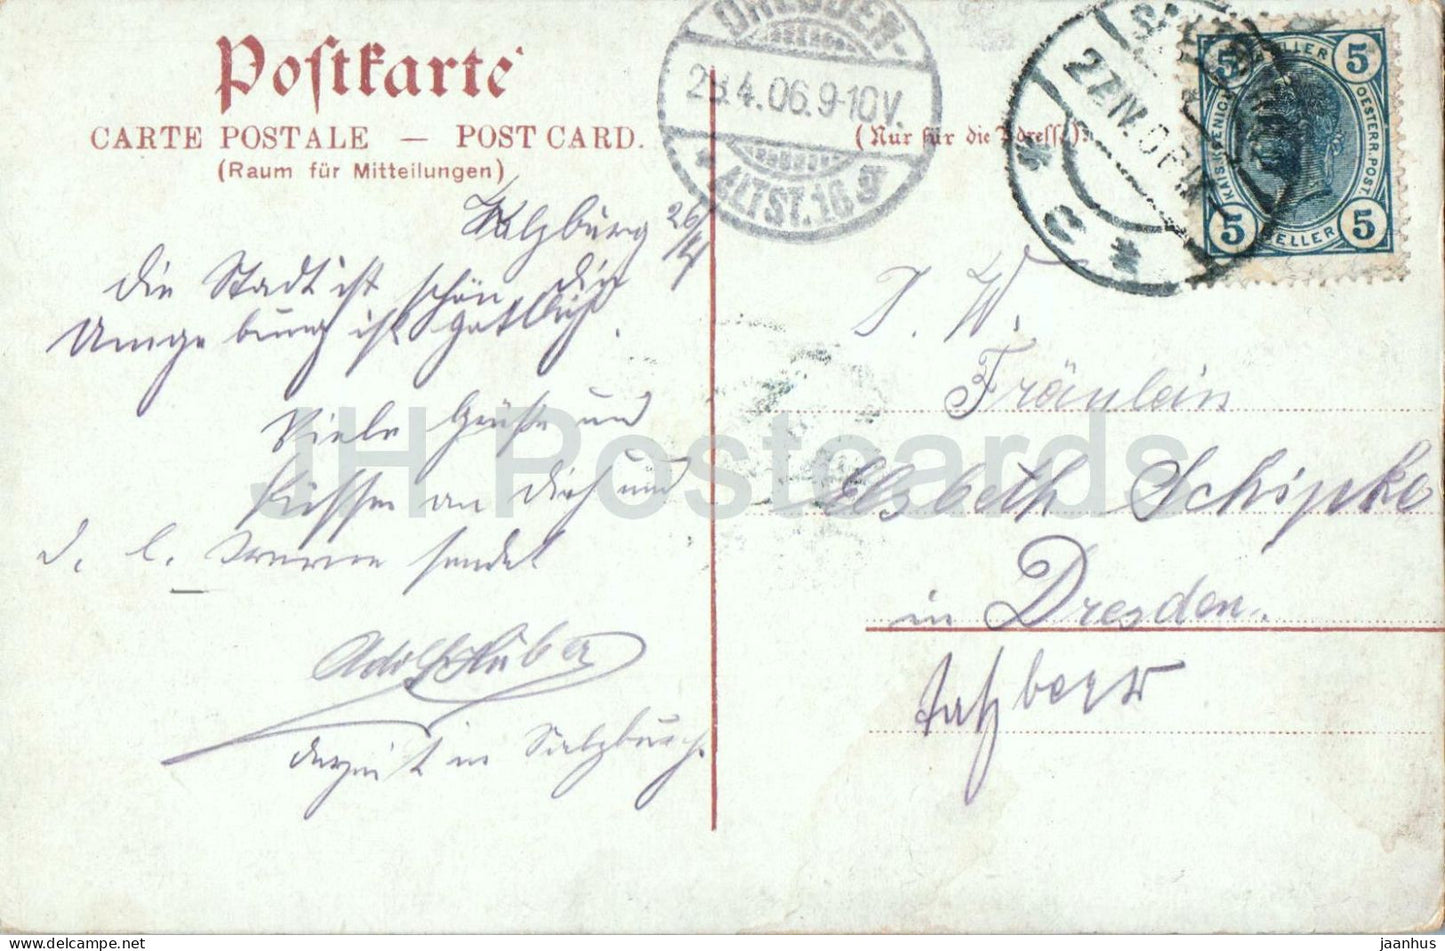 Postkarte
CARTE POSTALE — POST CARD.
(Raum für Mitteilungen)
Salzburg 26/4
die Stadt ist schön die
Umgebung ist göttlich.
Viele Grüße und
Küssen an Dich und
d. l. sendet
Adolf Huber
derzeit in Salzburg.
DRESDEN-
28.4.06.9-10V.
* ALTST. 16.
(Nur für die Adresse).
27 IV 06
5 HELLER 5
KAIS. KOENIGL.
OESTERR. POST
5 HELLER 5
I. W.
Fräulein
Elsbeth Schipke
in Dresden.
JH Postcards
jaanhus